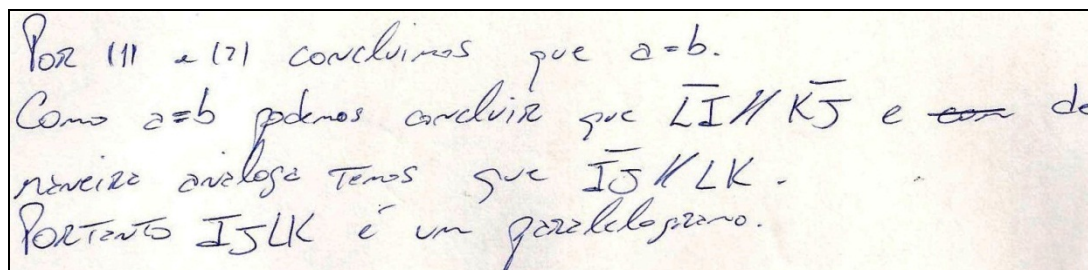 Por (1) e (2) concluimos que a=b.
Como a=b podemos concluir que L̅I̅ // K̅J̅ e com de
maneira análoga temos que I̅J̅ // LK.
Portanto IJLK é um paralelogramo.